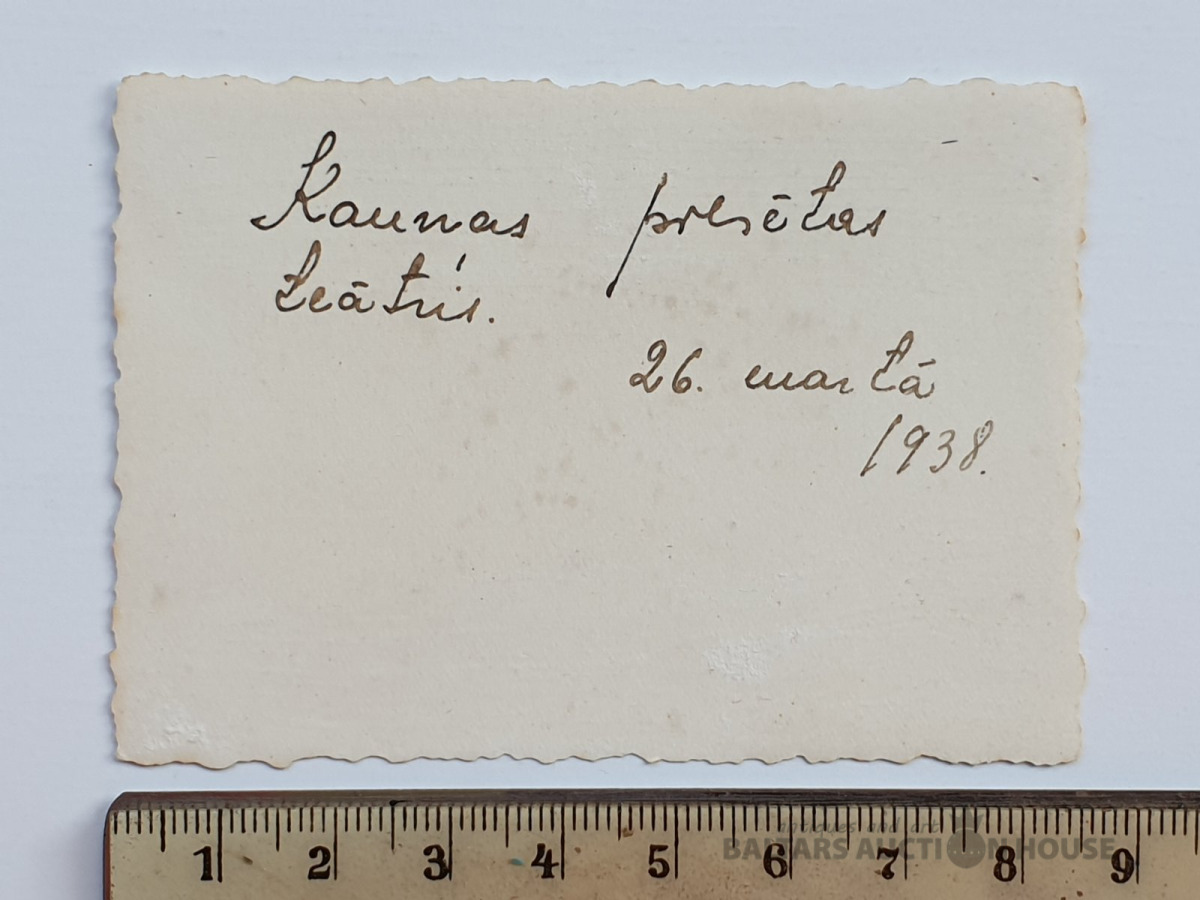 Kaunas pilsētas
teātris.
26. martā
1938.
1 2 3 4 5 6 7 8 9
antiques and art
BALTARS AUCTION HOUSE